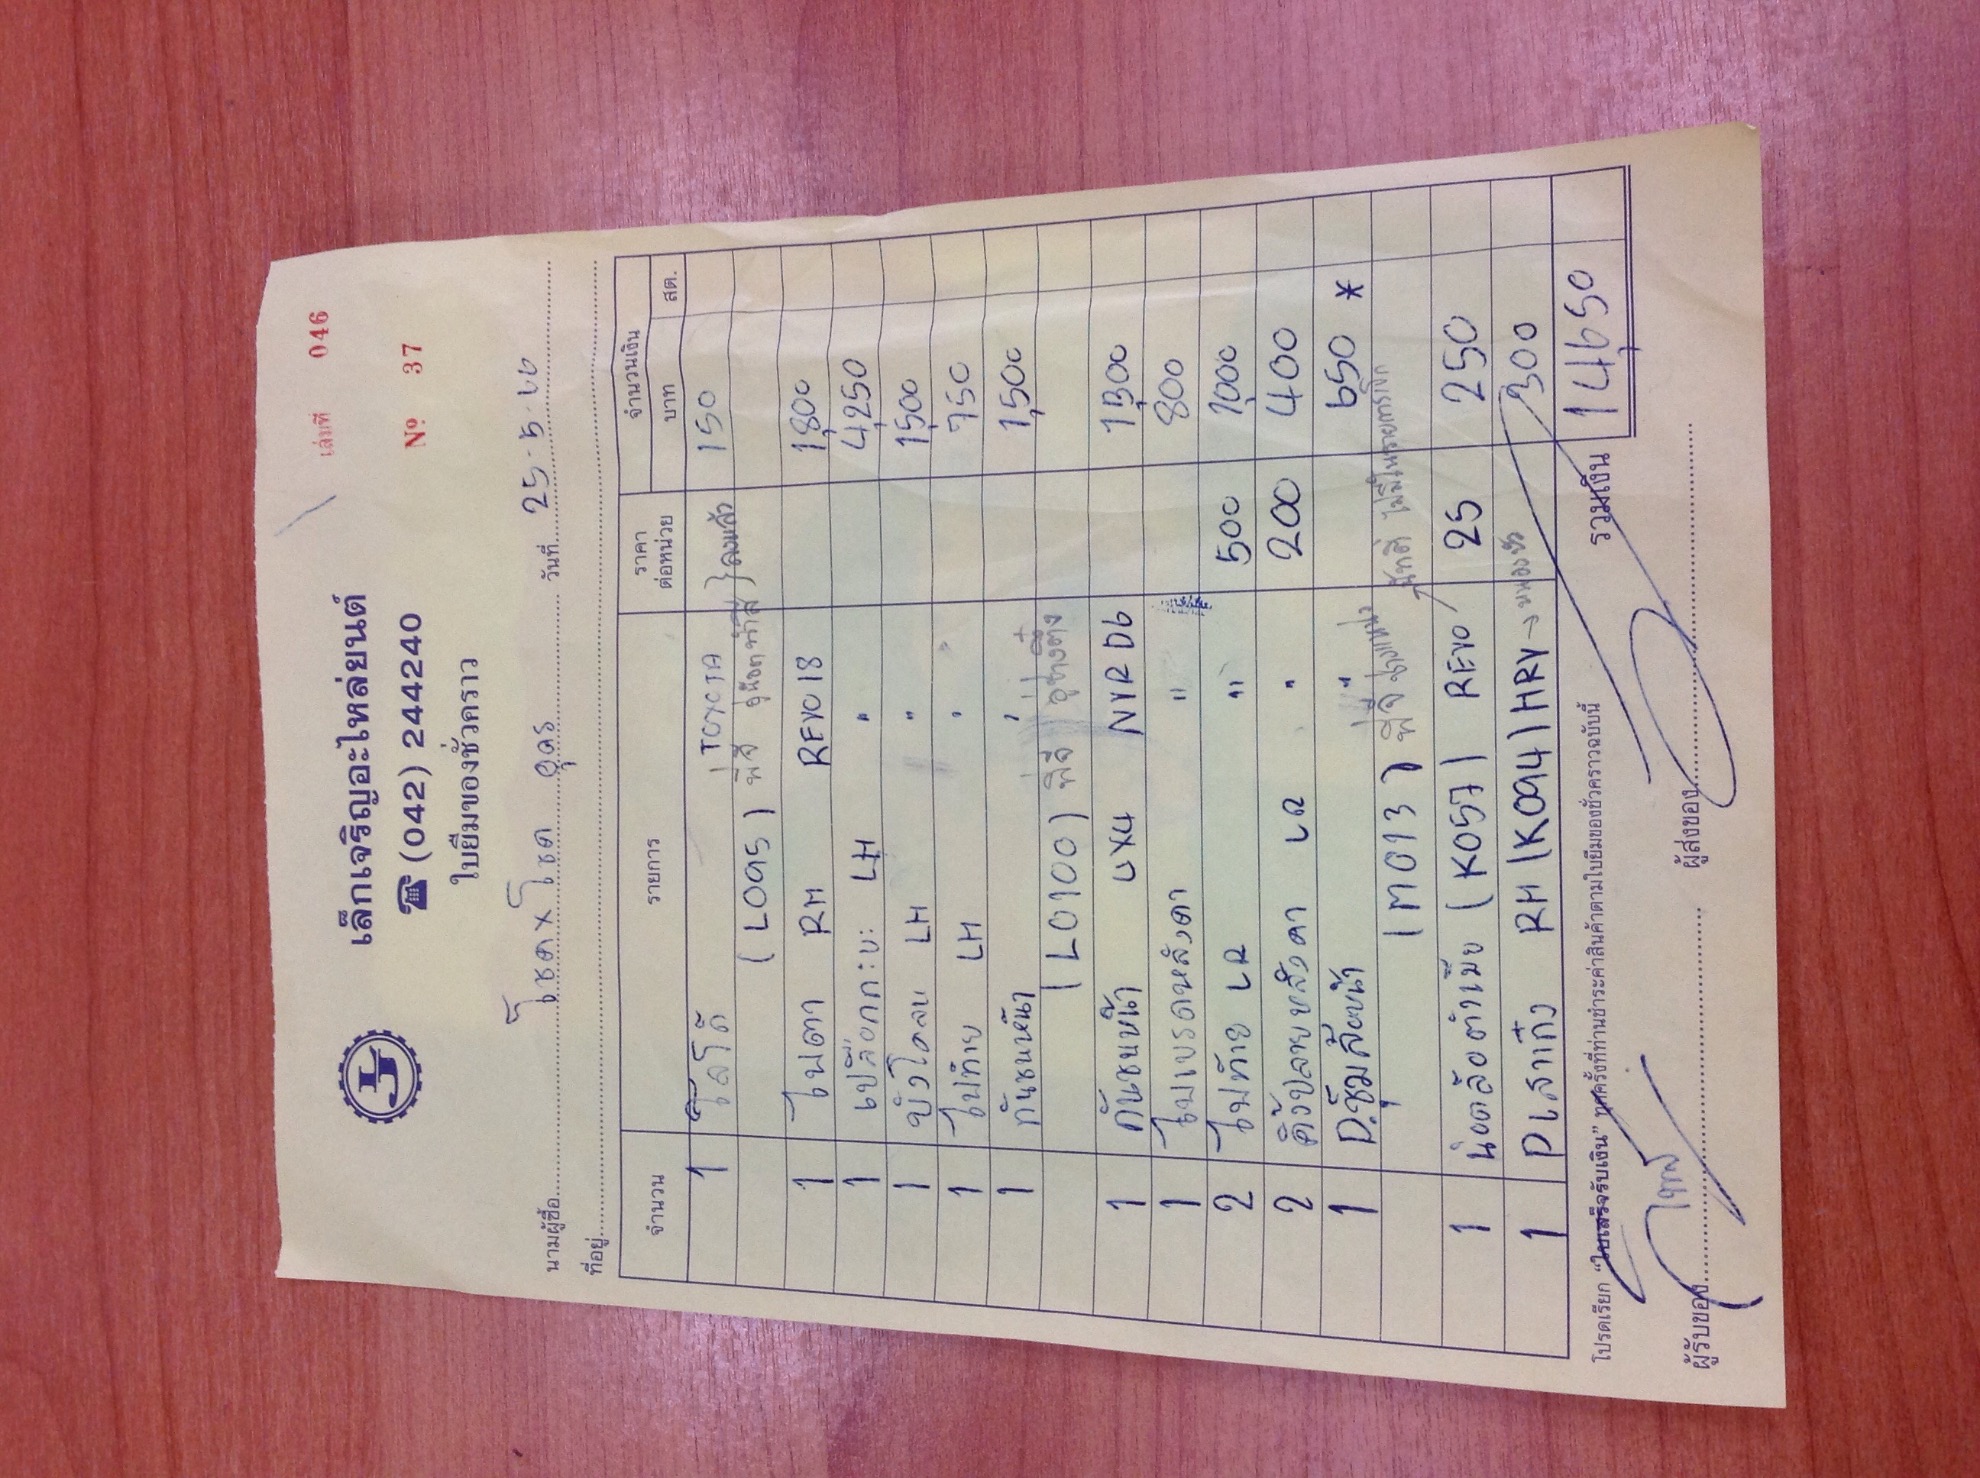 เล่มที่ 046
เล็กเจริญอะไหล่ยนต์
☎ (042) 244240
Nº 37
ใบยืมของชั่วคราว
นามผู้ซื้อ โชคxโชค อุดร วันที่ 25-5-66
ที่อยู่
จำนวน รายการ ราคาต่อหน่วย จำนวนเงิน
บาท สต.
1 โลโก้ TOYOTA 150
(L095) พี่จี ลงแล้ว
1 ไฟตา RH REVO 18 1,800
1 เปลือกกะบะ LH " 4,250
1 LH " 1,500
1 ไฟท้าย LH " 750
1 กันชนหน้า " 1,500
(L0100) พี่จี
1 กันชนหน้า 4X4 NVR D6 1,300
1 ไฟเบรคหลังคา " 800
2 ไฟท้าย LR " 500 1,000
2 คิ้วปลายหลังคา LR " 200 400
1 P.ซุ้มล้อหน้า " 650 *
(M013) พี่จี ไม่มีในรายการเบิก
1 น๊อตล้อตัวเมีย (K057) REVO 25 250
1 P เสาเก๋ง RH (K094) HRV → 300
รวมเงิน 14,650
โปรดเรียก "ใบเสร็จรับเงิน" ทุกครั้งที่ท่านชำระค่าสินค้าตามใบยืมของชั่วคราวฉบับนี้
ผู้รับของ ผู้ส่งของ